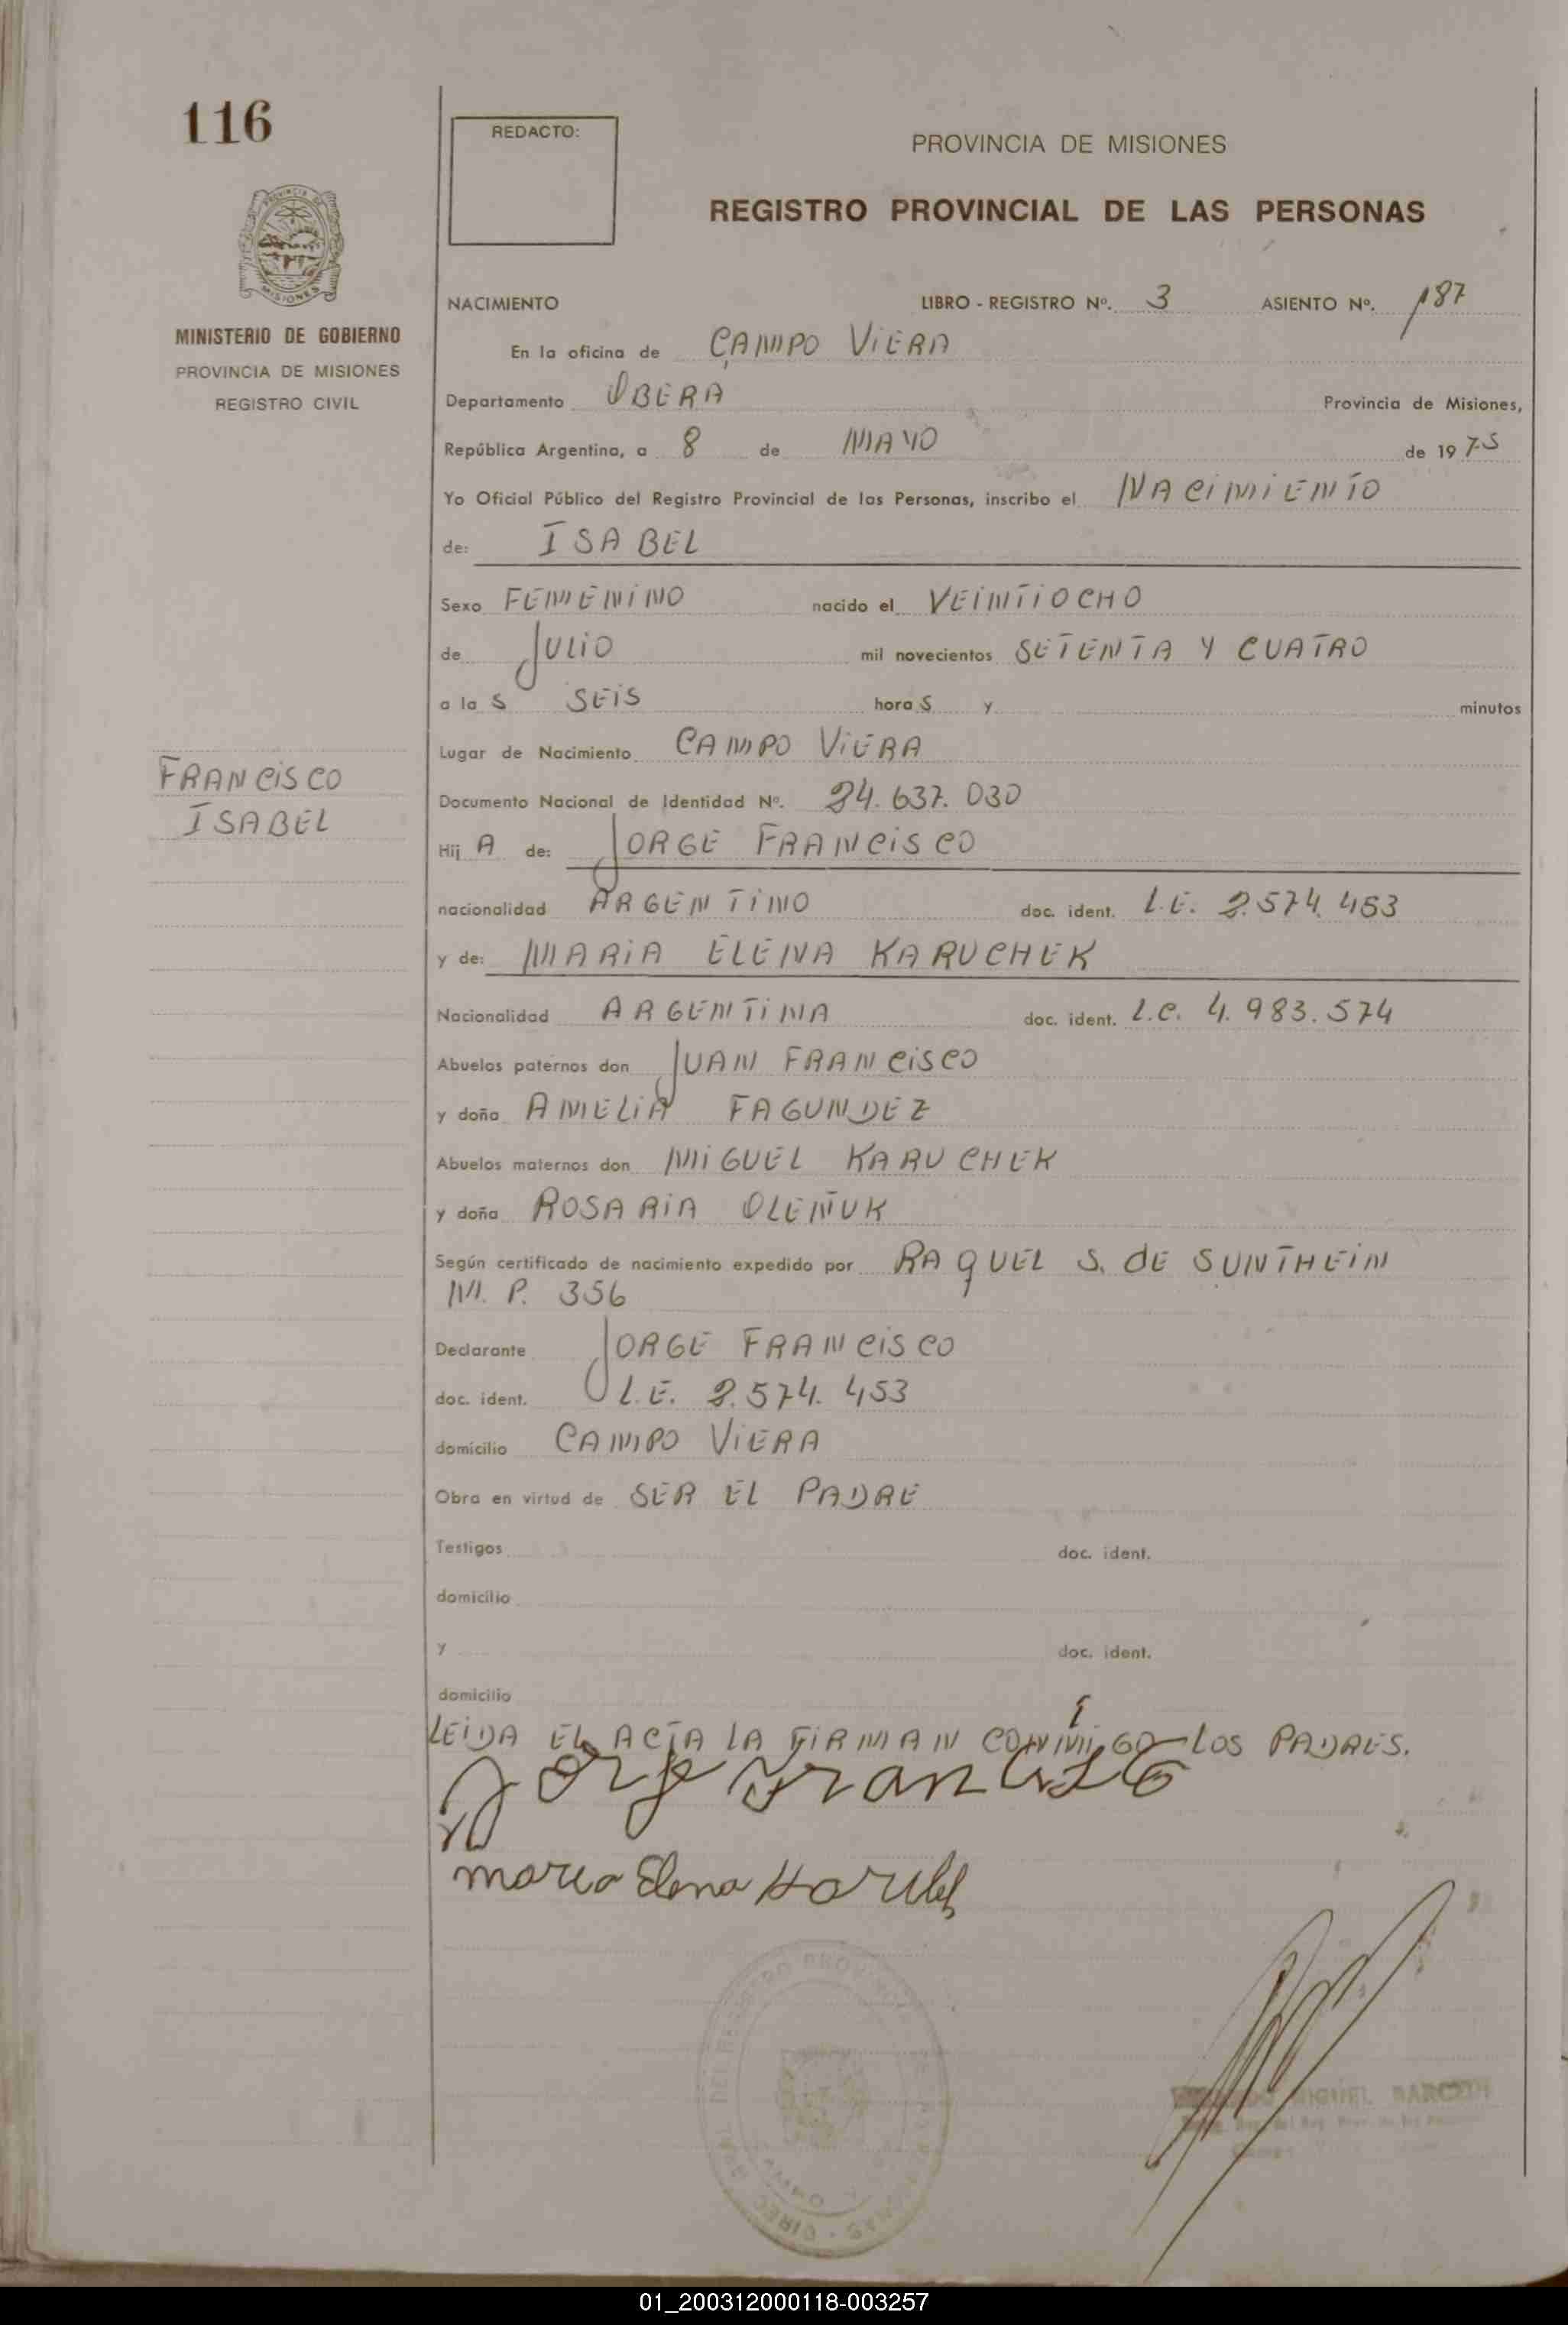 116
REDACTO:
PROVINCIA DE MISIONES
REGISTRO PROVINCIAL DE LAS PERSONAS
MISIONES
MINISTERIO DE GOBIERNO
PROVINCIA DE MISIONES
REGISTRO CIVIL
NACIMIENTO LIBRO - REGISTRO Nº. 3 ASIENTO Nº. 187
En la oficina de CAMPO VIERA
Departamento OBERA Provincia de Misiones,
República Argentina, a 8 de MAYO de 1975
Yo Oficial Público del Registro Provincial de las Personas, inscribo el NACIMIENTO
de: ISABEL
Sexo FEMENINO nacido el VEINTIOCHO
de JULIO mil novecientos SETENTA Y CUATRO
a la S SEIS hora S y minutos
Lugar de Nacimiento CAMPO VIERA
FRANCISCO
ISABEL
Documento Nacional de Identidad Nº. 24.637.030
Hij A de: JORGE FRANCISCO
nacionalidad ARGENTINO doc. ident. L.E. 8.574.453
y de: MARIA ELENA KARUCHEK
Nacionalidad ARGENTINA doc. ident. L.C. 4.983.574
Abuelos paternos don JUAN FRANCISCO
y doña AMELIA FAGUNDEZ
Abuelos maternos don MIGUEL KARUCHEK
y doña ROSARIA OLEÑUK
Según certificado de nacimiento expedido por RAQUEL S. DE SUNTHEIN
M. P. 356
Declarante JORGE FRANCISCO
doc. ident. L.E. 8.574.453
domicilio CAMPO VIERA
Obra en virtud de SER EL PADRE
Testigos doc. ident.
domicilio
y doc. ident.
domicilio
LEIDA EL ACTA LA FIRMAN CONMIGO LOS PADRES.
Jorge Francisco
Maria Elena
MIGUEL
01_200312000118-003257